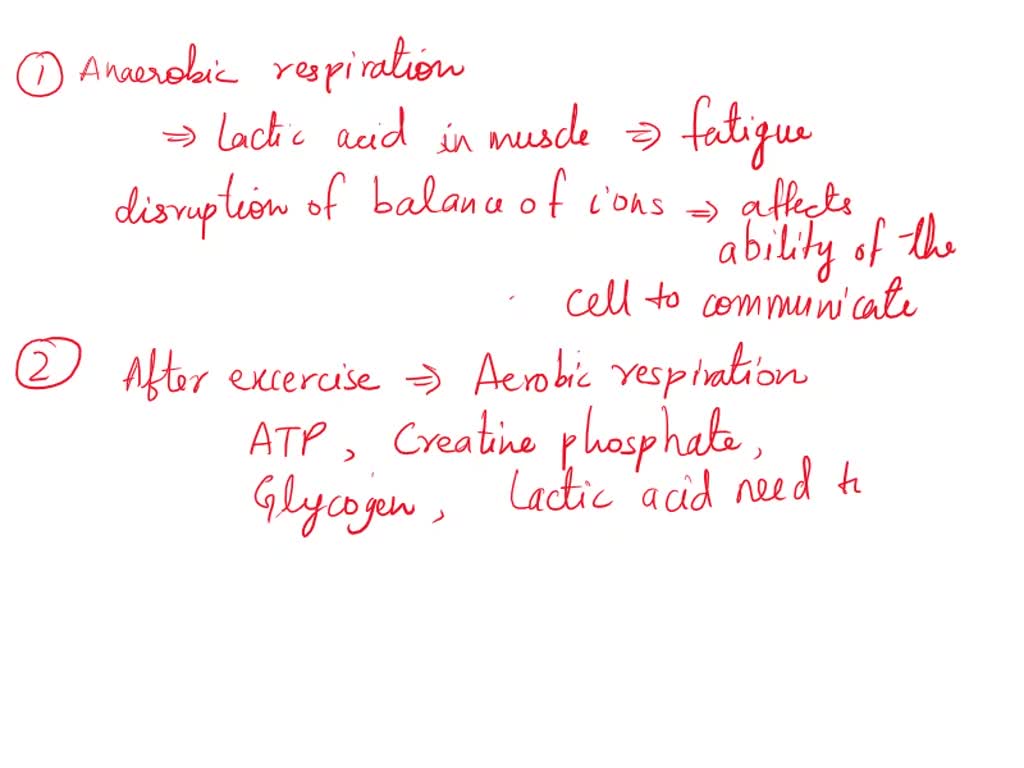 ① Anaerobic respiration
⇒ Lactic acid in muscle ⇒ fatigue
disruption of balance of ions ⇒ affects
ability of the
cell to communicate
② After excercise ⇒ Aerobic respiration
ATP, Creatine phosphate,
Glycogen, Lactic acid need t